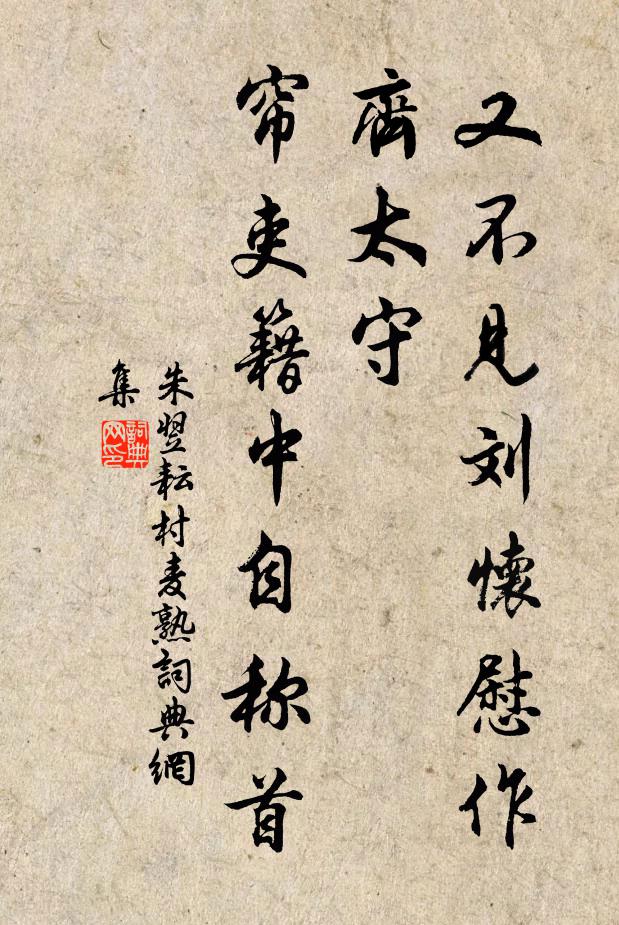 又不见刘懷慰作
齊太守
帘吏籍中自称首
朱翌耘村麦熟詞典網
集
詞典
网印